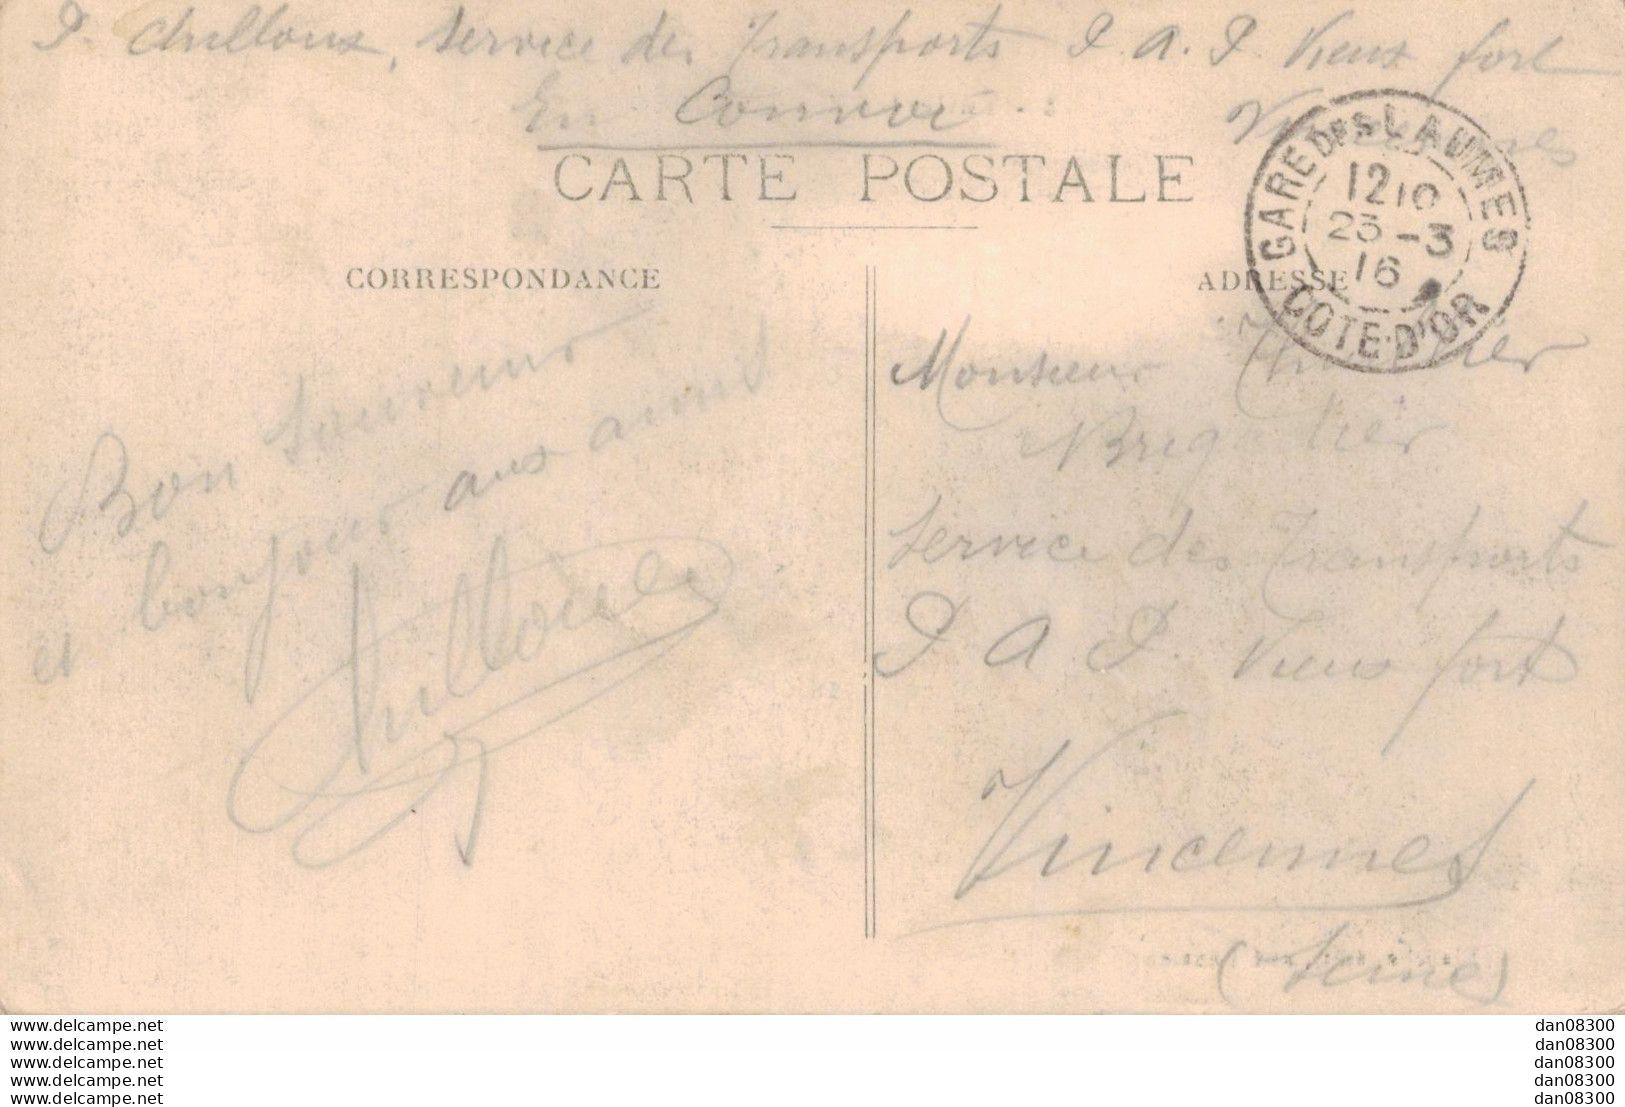 P. Chilloux, Service des Transports P.A.P. Vieux fort
En Convoi Vincennes
CARTE POSTALE
GARE DES LAUMES
12 10
23 -3
16
COTE-D'OR
CORRESPONDANCE
ADRESSE
Bon souvenir
et bonjour aux amis
Chilloux
Monsieur
Brigadier
Service des Transports
P A P. Vieux fort
Vincennes
(Seine)
www.delcampe.net
www.delcampe.net
www.delcampe.net
www.delcampe.net
www.delcampe.net
dan08300
dan08300
dan08300
dan08300
dan08300